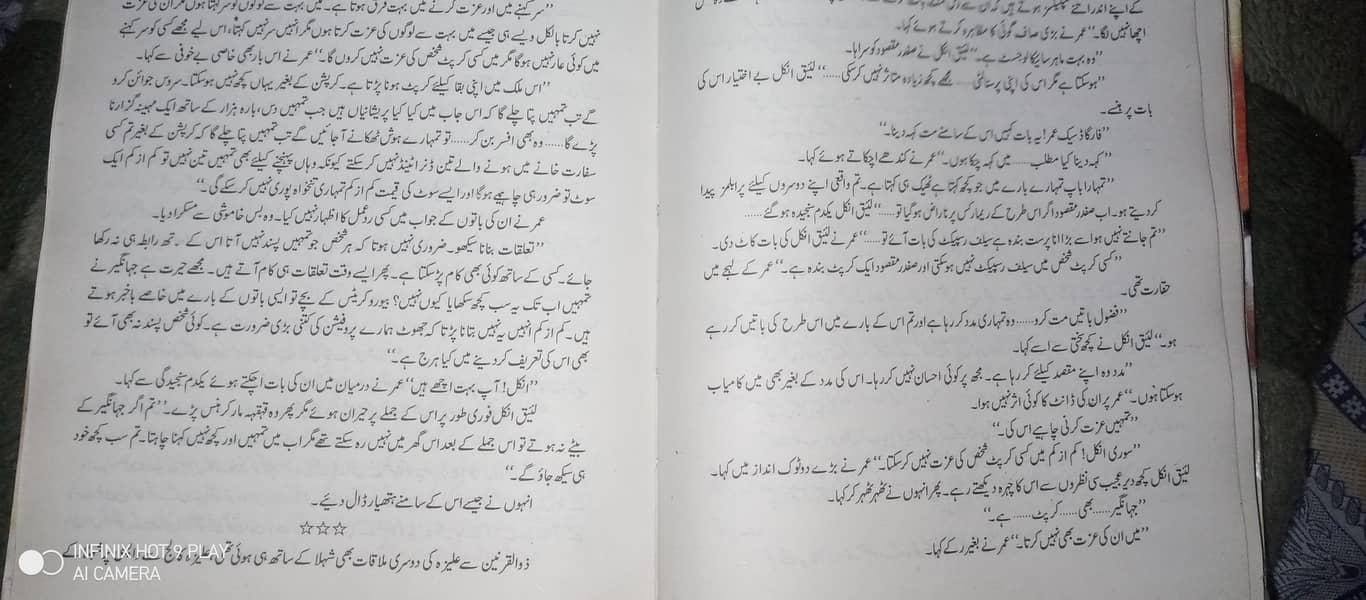 اچھا نہیں لگا۔“ عمر نے بڑی صاف گوئی کا مظاہرہ کرتے ہوئے کہا۔
”وہ بہت ماہر سائیکالوجسٹ ہے۔“ لئیق انکل نے صفدر مقصود کو سراہا۔
”ہو سکتا ہے مگر اس کی اپنی پرسنالٹی مجھے کچھ زیادہ متاثر نہیں کر سکی……“ لئیق انکل بے اختیار اس کی
بات پر ہنسے۔
”فار گاڈ سیک عمر! یہ بات کہیں اس کے سامنے مت کہہ دینا۔“
”کہہ دینا کیا مطلب…… میں کہہ چکا ہوں۔“ عمر نے کندھے اچکاتے ہوئے کہا۔
”تمہارا باپ تمہارے بارے میں جو کچھ کہتا ہے ٹھیک ہی کہتا ہے۔ تم واقعی اپنے دوسروں کیلئے پرابلمز پیدا
کر دیتے ہو۔ اب صفدر مقصود اگر اس طرح کے ریمارکس پر ناراض ہو گیا تو……“ لئیق انکل یکدم سنجیدہ ہو گئے……
”تم جانتے نہیں ہو اسے بڑا انا پرست بندہ ہے سیلف رسپیکٹ کی بات آئے تو……“ عمر نے لئیق انکل کی بات کاٹ دی۔
”کسی کرپٹ شخص میں سیلف رسپیکٹ نہیں ہو سکتی اور صفدر مقصود ایک کرپٹ بندہ ہے۔“ عمر کے لہجے میں
حقارت تھی۔
”فضول باتیں مت کرو…… وہ تمہاری مدد کر رہا ہے اور تم اس کے بارے میں اس طرح کی باتیں کر رہے
ہو۔“ لئیق انکل نے کچھ سختی سے اسے کہا۔
”مدد وہ اپنے مقصد کیلئے کر رہا ہے۔ مجھ پر کوئی احسان نہیں کر رہا۔ اس کی مدد کے بغیر بھی میں کامیاب
ہو سکتا ہوں۔“ عمر پر ان کی ڈانٹ کا کوئی اثر نہیں ہوا۔
”تمہیں عزت کرنی چاہیے اس کی۔“
”سوری انکل! کم از کم میں کسی کرپٹ شخص کی عزت نہیں کر سکتا۔“ عمر نے بڑے دو ٹوک انداز میں کہا۔
لئیق انکل کچھ دیر عجیب سی نظروں سے اس کا چہرہ دیکھتے رہے۔ پھر انہوں نے ٹھہر ٹھہر کر کہا۔
”جہانگیر…… بھی…… کرپٹ…… ہے۔“
”میں ان کی عزت بھی نہیں کرتا۔“ عمر نے بغیر رکے کہا۔
”سر کہنے میں اور عزت کرنے میں بہت فرق ہوتا ہے۔ میں بہت سے لوگوں کو سر کہتا ہوں مگر ان کی عزت
نہیں کرتا بالکل ویسے ہی جیسے میں بہت سے لوگوں کی عزت کرتا ہوں مگر انہیں سر نہیں کہتا، اس لیے مجھے کسی کو سر کہنے
میں کوئی عار نہیں ہو گا مگر میں کسی کرپٹ شخص کی عزت نہیں کروں گا۔“ عمر نے اس بار بھی خاصی بے خوفی سے کہا۔
”اس ملک میں اپنی بقا کیلئے کرپٹ ہونا پڑتا ہے۔ کرپشن کے بغیر یہاں کچھ نہیں ہو سکتا۔ سروس جوائن کرو
گے تب تمہیں پتا چلے گا کہ اس جاب میں کیا کیا پریشانیاں ہیں جب تمہیں دس، بارہ ہزار کے ساتھ ایک مہینہ گزارنا
پڑے گا…… وہ بھی افسر بن کر…… تو تمہارے ہوش ٹھکانے آ جائیں گے تب تمہیں پتا چلے گا کہ کرپشن کے بغیر تم کسی
سفارت خانے میں ہونے والے تین ڈنر اٹینڈ نہیں کر سکتے کیونکہ وہاں پہنچنے کیلئے بھی تمہیں تین نہیں تو کم از کم ایک
سوٹ تو ضرور ہی چاہیے ہو گا اور ایسے سوٹ کی قیمت کم از کم تمہاری تنخواہ پوری نہیں کر سکے گی۔“
عمر نے ان کی باتوں کے جواب میں کسی رد عمل کا اظہار نہیں کیا۔ وہ بس خاموشی سے مسکرا دیا۔
”تعلقات بنانا سیکھو۔ ضروری نہیں ہوتا کہ ہر شخص جو تمہیں پسند نہیں آتا اس کے ساتھ رابطہ ہی نہ رکھا
جائے۔ کسی کے ساتھ کوئی بھی کام پڑ سکتا ہے۔ پھر ایسے وقت تعلقات ہی کام آتے ہیں۔ مجھے حیرت ہے جہانگیر نے
تمہیں اب تک یہ سب کچھ سکھایا کیوں نہیں؟ بیوروکریٹس کے بچے تو ایسی باتوں کے بارے میں خاصے باخبر ہوتے
ہیں۔ کم از کم انہیں یہ نہیں بتانا پڑتا کہ جھوٹ ہمارے پروفیشن کی کتنی بڑی ضرورت ہے۔ کوئی شخص پسند نہ بھی آئے تو
بھی اس کی تعریف کر دینے میں کیا ہرج ہے۔“
”انکل! آپ بہت اچھے ہیں“ عمر نے درمیان میں ان کی بات اچکتے ہوئے یکدم سنجیدگی سے کہا۔
لئیق انکل فوری طور پر اس کے جملے پر حیران ہوئے مگر پھر وہ قہقہہ مار کر ہنس پڑے۔ ”تم اگر جہانگیر کے
بیٹے نہ ہوتے تو اس جملے کے بعد اس گھر میں نہیں رہ سکتے تھے مگر اب میں تمہیں اور کچھ نہیں کہنا چاہتا۔ تم سب کچھ خود
ہی سیکھ جاؤ گے۔“
انہوں نے جیسے اس کے سامنے ہتھیار ڈال دیئے۔
☆☆☆
ذوالقرنین سے علیزہ کی دوسری ملاقات بھی شہلا کے ساتھ ہی ہوئی تھی
INFINIX HOT 9 PLAY
AI CAMERA